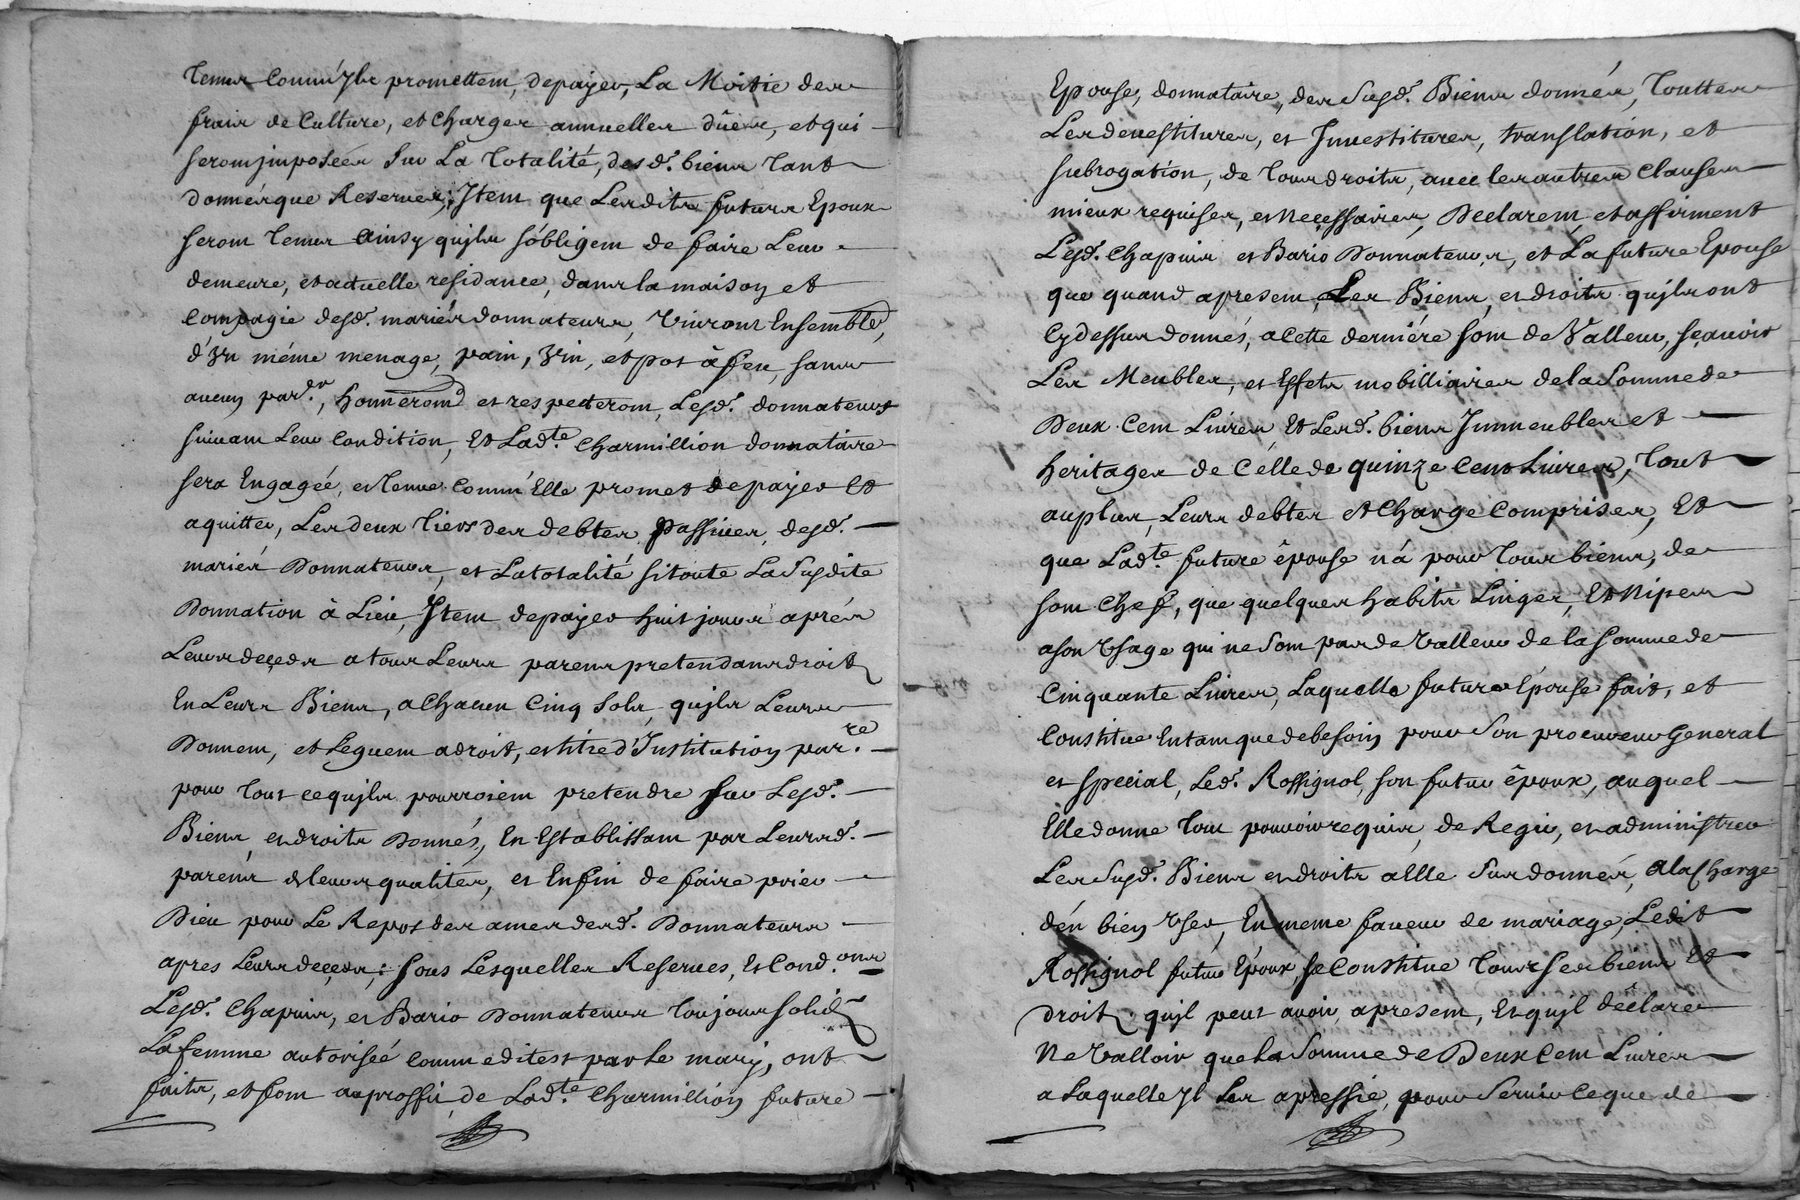 tenus comm'Jls promettent, depayer, La Moitié des
frais de Culture, et Charges annuelles düës, et qui
seront jmposéés sur La totalité, des d. biens tant
donnés que Reserves; Jtem que Lesdits futurs Epoux
seront tenus ainsy qujls s'obligent de faire Leur
demeure, et actuelle residance, dans la maison et
Compagie desd. mariés donnateurs, vivront Ensemble,
d'Vn méme menage, pain, Vin, et pot à feu, sans
aucun par.on, Honneront et respecteront, Lesd. donnateurs
suivant Leur Condition, Et Lad.te Charmillion donnataire
sera Engagéé, et tenue Comm'Elle promet depayer Et
aquitter, Les deux tiers des debtes, passives, desd.
mariés Donnateurs, et La totalité si toute La Susdite
Donnation à Lieu, Jtem depayer huit jours aprés
Leurs deçeds a tous Leurs parens pretendans droit
En Leurs Biens, a Chacun Cinq Sols, qujls Leurs
Donnent, et Leguent a droit, et titre d'Institution par.re
pour tout ce qujls pourroient pretendre sur Lesd.
Biens, et droits Donnés, En Establissant par Leursd.
paréns et leurs qualités, et Enfin de faire prier
Dieu pour Le Repos des ames desd. Donnateurs
apres Leurs deçeds; sous Lesquelles Reserves, Et Cond.ons
Lesd. Chapuis, et Bario Donnateurs toujours solid
La femme autoriséé comme dit est par le mary, ont
faits, et font au proffit, de Lad.te Charmillion future
Epouse, donnataire, des Susd. Biens donnés, touttes
Les devestitures, et Jnvestitures, translation, et
subrogation, de tous droits, avec les autres Clauses
mieux requises, et Necessaires, Declarent et affirment
Lesd. Chapuis et Bario Donnateurs, et La future Epouse
que quand apresent, Les Biens, et droits qujls ont
Cy dessus donnés, a Cette derniére sont de Valleur, sçavoir
Les Meubles, et Effets mobilliaires de la Somme de
Deux Cent Livres, Et Lesd. biens Jmmeubles et
heritages de Célle de quinze Cens Livres, tout
au plus, Leurs debtes et Charge Comprises, Et
que Lad.te future épouse n'á pour tous biens, de
son Chef, que quelques habits Linges, Et Nipes
a son Vsage qui ne sont pas de Valleur de la somme de
Cinquante Livres, Laquelle future Epouse fait, et
Constitue En tant que de besoin pour Son procureur General
et special, Led. Rossignol, son futur époux, auquel
Elle donne tout pouvoir requis, de Regir, et administrer
Les Susd. Biens et droits a Elle Sus donnés, a la Charge
d'en bien Vser, En meme faveur de mariage, Ledit
Rossignol futur Epoux, se Constitue tous ses biens Et
droits qujl peut avoir, apresent, Et qujl déclare
Ne Valloir que la Somme de Deux Cent Livres
a Laquelle Jl Les apressie, pour Servir Ce que de